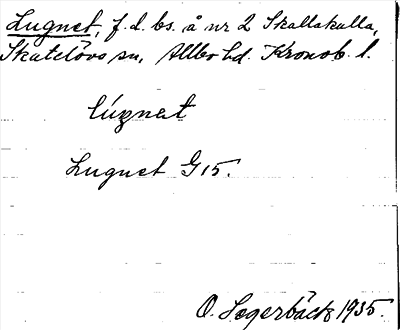 Lugnet, f. d. bs. å nr 2 Skallakulla,
Skatelövs sn, Allbo hd. Kronob. l.
lúgnat
Lugnet G 15.
O. Segerbäck 1935.